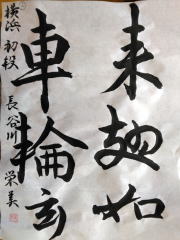 来翅如
車輪玄
横浜 初段 長谷川 栄美